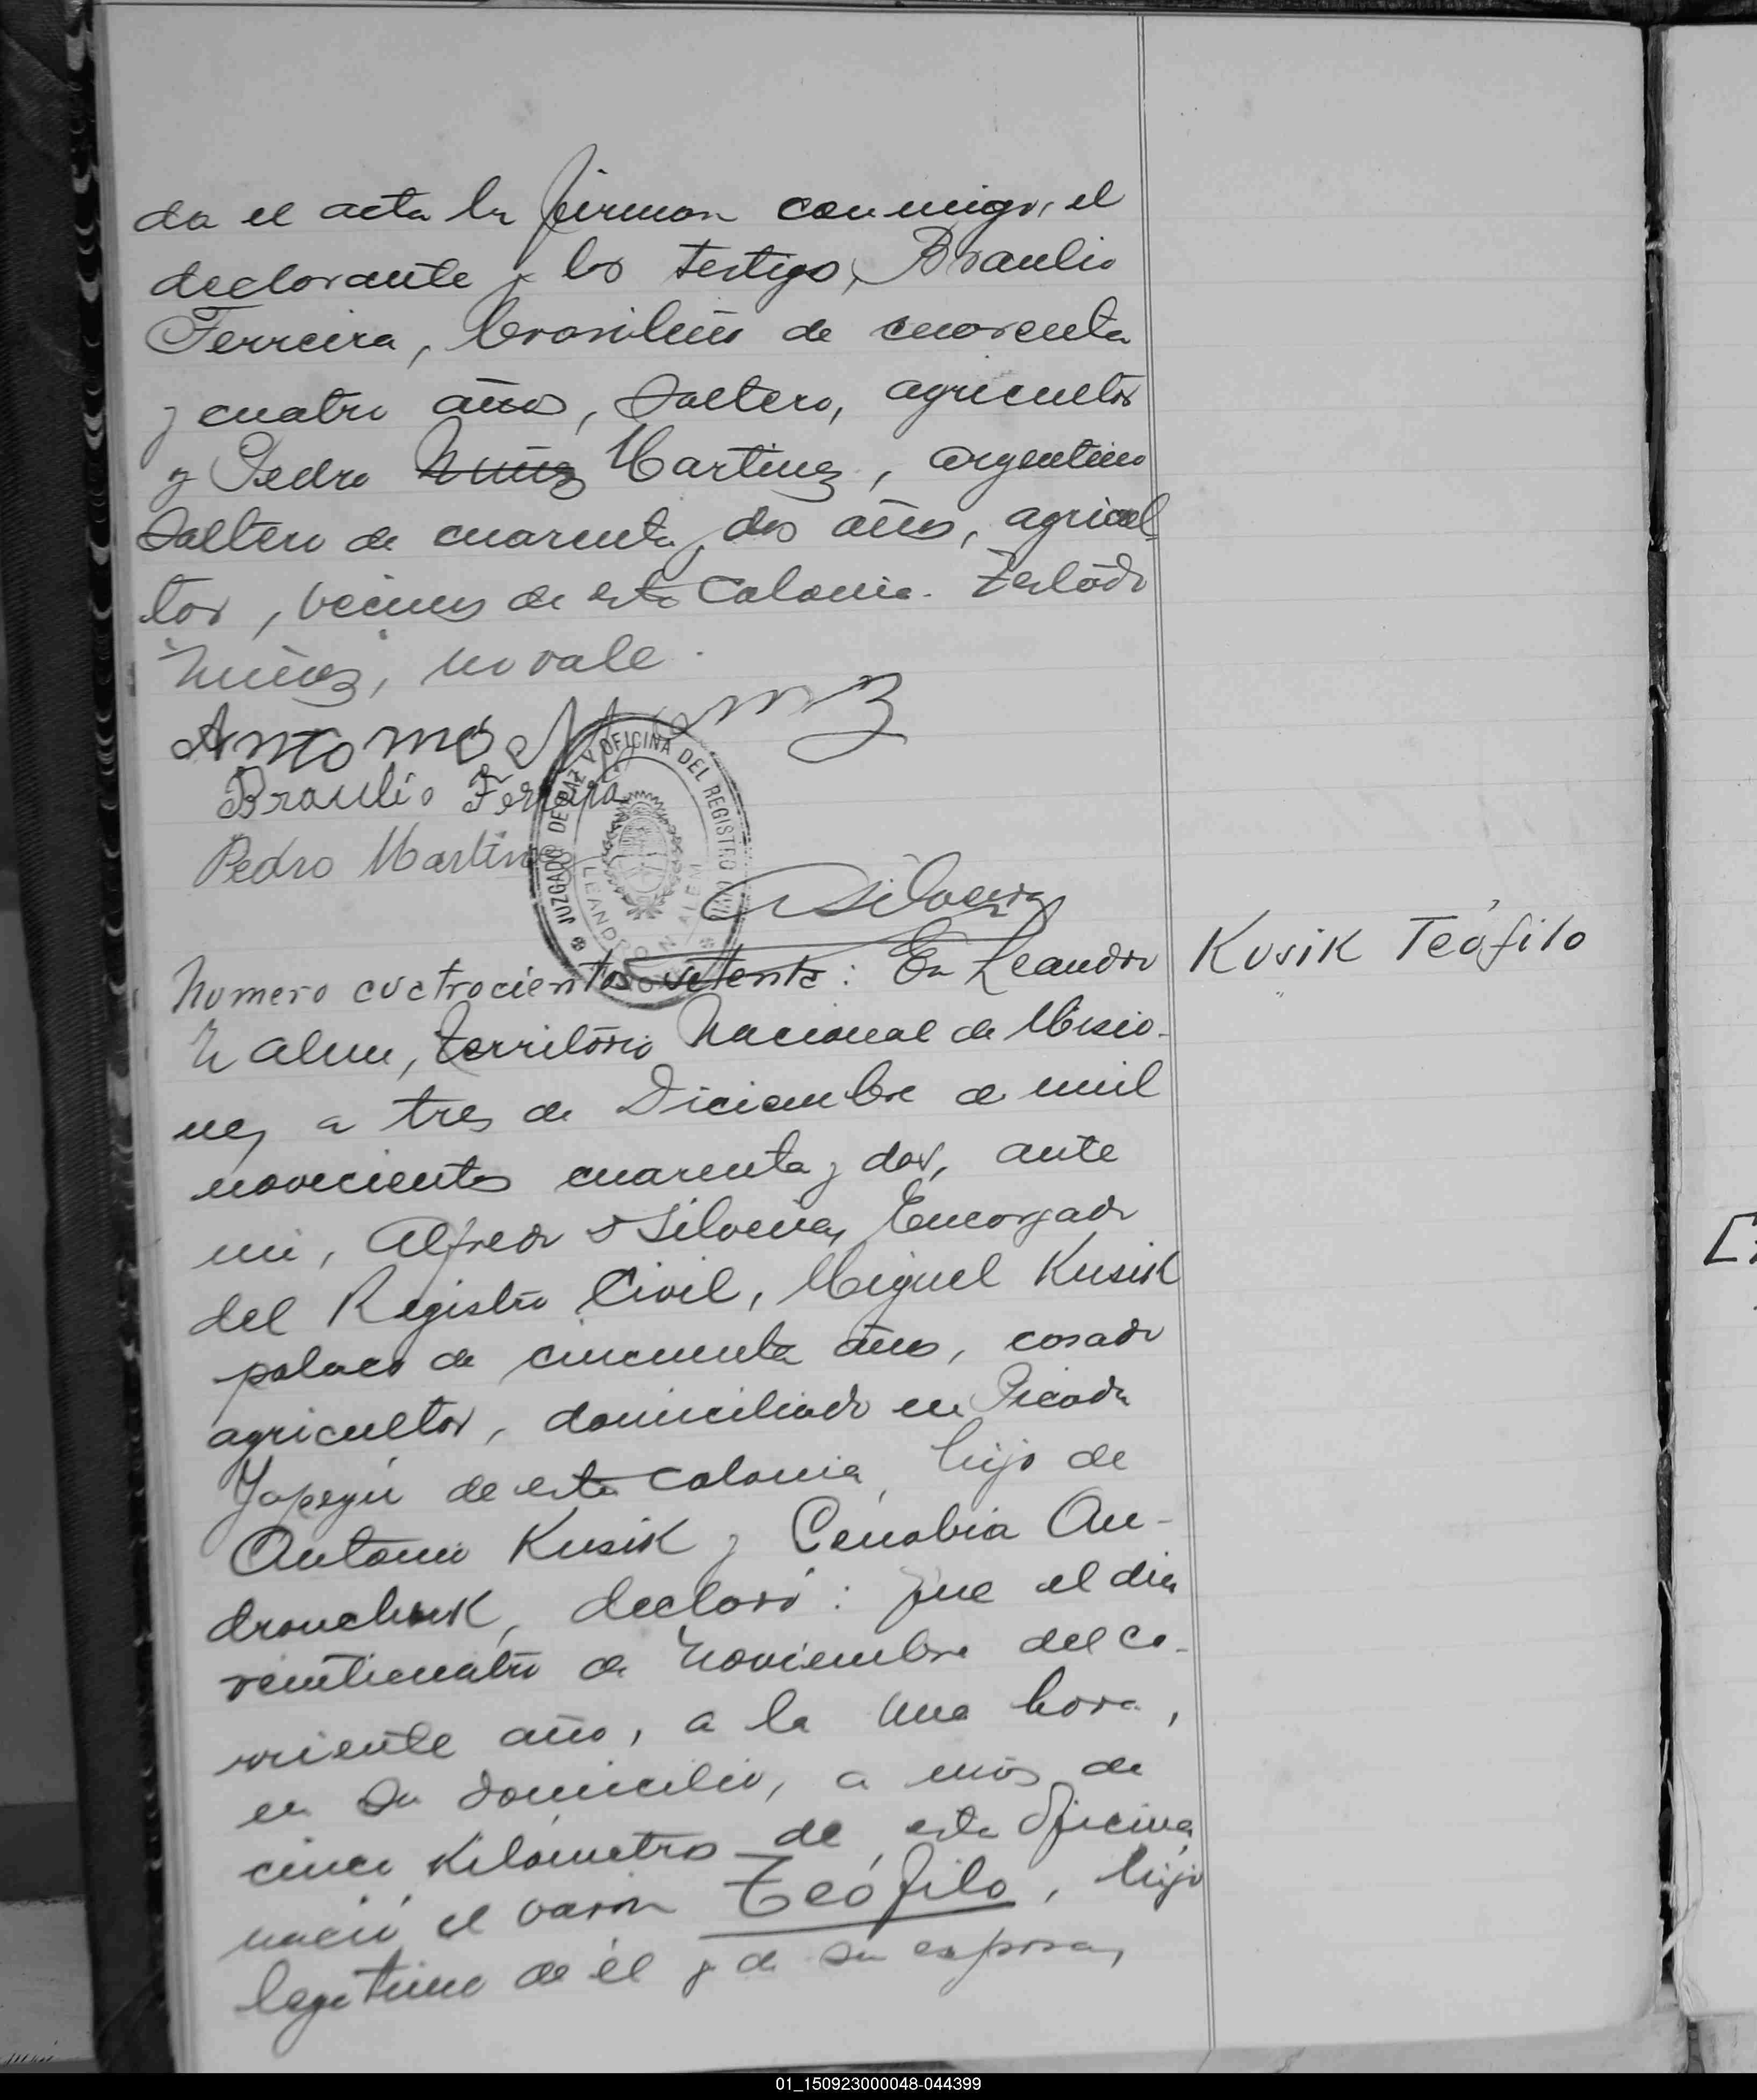 da el acta la firman conmigo, el
declarante y los testigos, Braulio
Ferreira, brasileño de cuarenta
y cuatro años, soltero, agricultor
y Pedro Nuñez Martinez, argentino
soltero de cuarenta y dos años, agricul-
tor, vecinos de esta Colonia. Testado
Nuñez, no vale.
Antonio
Braulio Ferreira
Pedro Martinez
JUZGADO DE PAZ Y OFICINA DEL REGISTRO CIVIL
LEANDRO N. ALEM
ADSilveira
Numero cuatrocientos setenta: En Leandro
Kusik Teófilo
N Alem, territorio Nacional de Misio-
nes, a tres de Diciembre de mil
novecientos cuarenta y dos, ante
mi, Alfredo D Silveira, Encargado
del Registro Civil, Miguel Kusik
polaco de cincuenta años, casado
agricultor, domiciliado en Picada
Yapeyú de esta Colonia, hijo de
Antonio Kusik y Cenobia An-
drouchuk, declaró: que el dia
veinticuatro de Noviembre del co-
rriente año, a la una hora,
en su domicilio, a más de
cinco kilómetros de esta Oficina,
nació el varón Teófilo, hijo
legitimo de él y de su esposa,
01_150923000048-044399